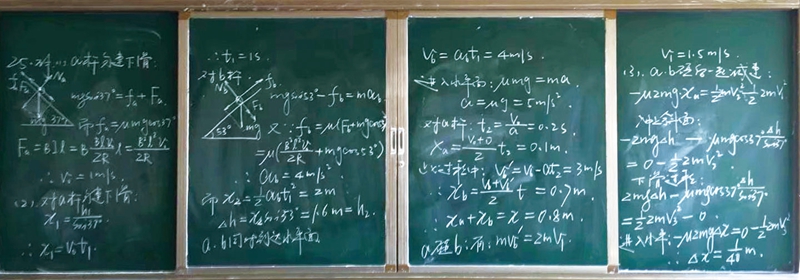 25.24.(1) a杆匀速下滑:
mgsin37°=fa+Fa
而fa=μmgcos37°
Fa=BIl=B·BlV₁/2R·l=B²l²V₁/2R
∴V₁=1m/s.
(2). 对a杆匀速下滑:
x₁=h₁/sin37°
∴x₁=V₁t₁
∴t₁=1s.
对b杆:
mgsin53°-fb=mab
又∵fb=μ(Fb+mgcos53°)
=μ(B²l²V₁/2R+mgcos53°)
∴ab=4m/s²
而x₂=½abt₁²=2m
Δh=x₂sin53°=1.6m=h₂
a.b同时到达水平面
V₂=abt₁=4m/s
进入水平面:μmg=ma
a=μg=5m/s²
对a杆:t₂=V₁/a=0.2s
xa=(V₁+0)/2 t₂=0.1m.
V₂'=V₂-at₂=3m/s
∴xb=(V₂+V₂')/2 t=0.7m
∴xa+xb=x=0.8m
a碰b:有:mV₂'=2mV₃
V₃=1.5m/s.
(3). a.b碰后一起减速:
-μ2mg·xa=½2mV₄²-½2mV₃²
入斜面:
-2mgΔh-μmgcos37°Δh/sin37°
=0-½2mV₄²
下滑过程:
2mgΔh-μmgcos37°Δh/sin37°
=½2mV₅²-0
进入水平:-μ2mgΔx=0-½2mV₅²
∴Δx=1/40 m.